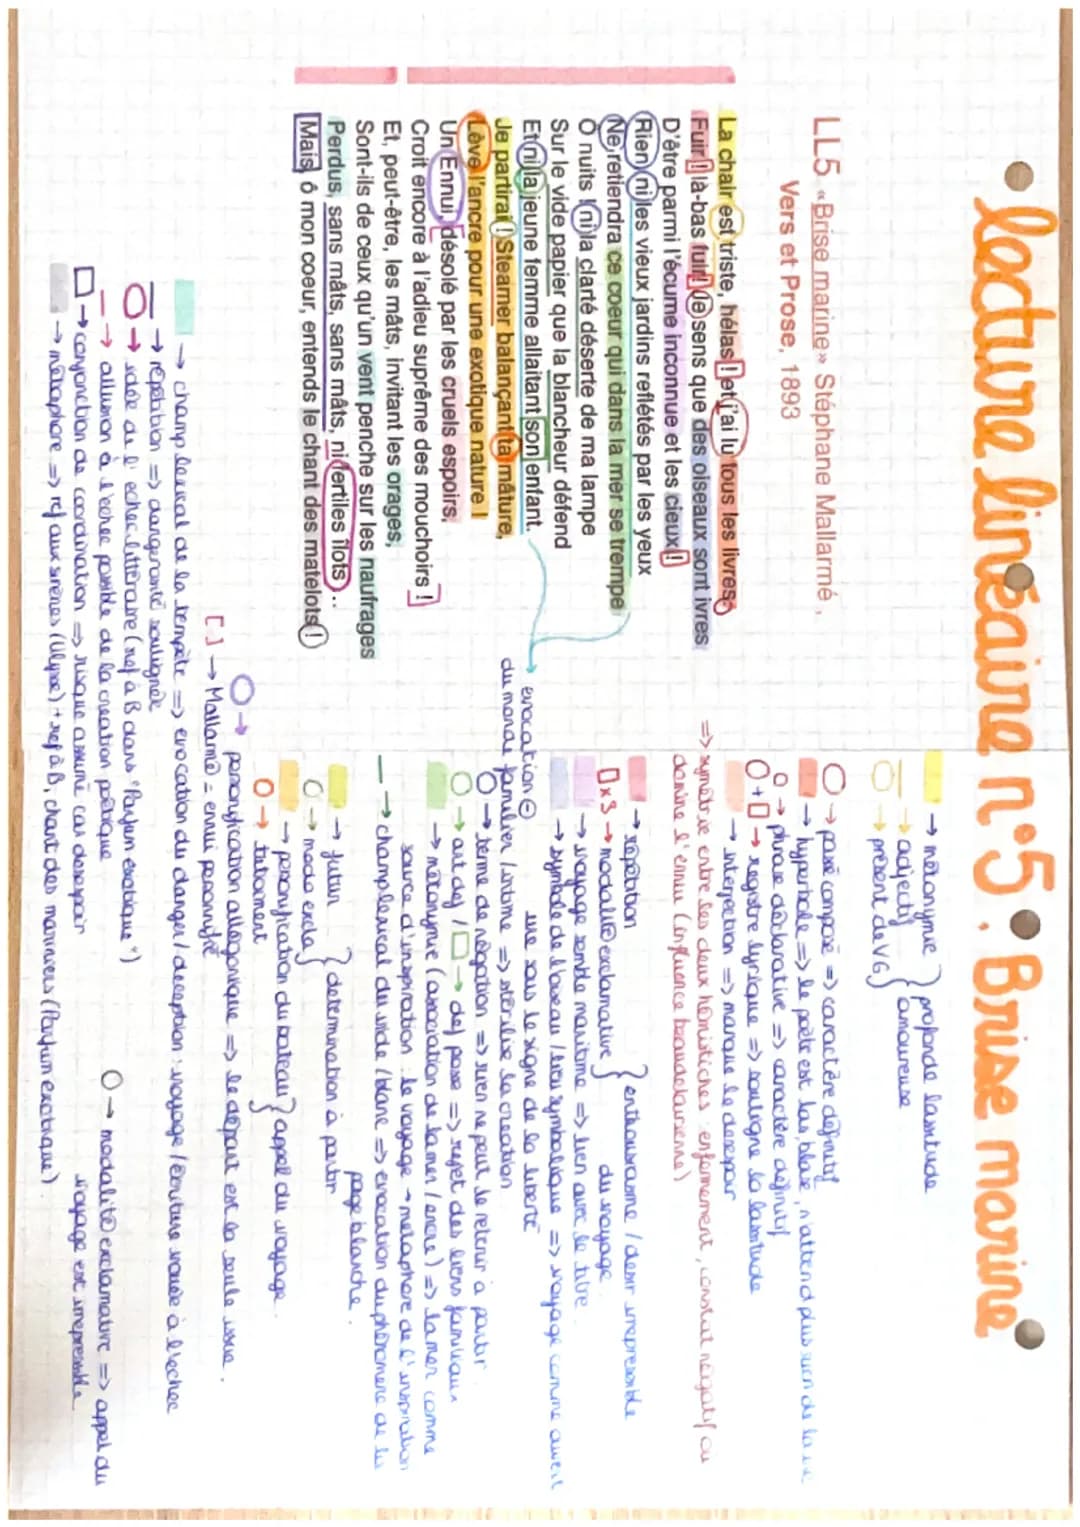 • lecture linéaire n°5 • Brise marine
LL5 «Brise marine» Stéphane Mallarmé,
Vers et Prose, 1893
La chair est triste, hélas ! et j'ai lu tous les livres.
Fuir ! là-bas fuir ! Je sens que des oiseaux sont ivres
D'être parmi l'écume inconnue et les cieux !
Rien, ni les vieux jardins reflétés par les yeux
Ne retiendra ce coeur qui dans la mer se trempe
Ô nuits ! ni la clarté déserte de ma lampe
Sur le vide papier que la blancheur défend
Et ni la jeune femme allaitant son enfant.
Je partirai ! Steamer balançant ta mâture,
Lève l'ancre pour une exotique nature !
Un Ennui, désolé par les cruels espoirs,
Croit encore à l'adieu suprême des mouchoirs !
Et, peut-être, les mâts, invitant les orages,
Sont-ils de ceux qu'un vent penche sur les naufrages
Perdus, sans mâts, sans mâts, ni fertiles îlots ...
Mais, ô mon coeur, entends le chant des matelots !
→ métonymie } profonde lassitude
→ adjectif } amoureuse
→ présent de VG
→ passé composé => caractère définitif
→ hyperbole => le poète est las, blasé, n'attend plus rien de la vie
→ phrase déclarative => caractère définitif
O+□ → registre lyrique => souligne la lassitude
→ interjection => marque le désespoir
=> symétrie entre les deux hémistiches : enfermement, constat négatif où
domine l'ennui (influence baudelairienne)
→ répétition } enthousiasme / désir irrepressible
□x3 → modalité exclamative } du voyage.
→ voyage semble maritime => lien avec le titre.
→ symbole de l'oiseau / lieu symbolique => voyage comme avenir
une sous le signe de la liberté
→ évocation ⊖
du monde familier / intime => stérilise la création.
O → terme de négation => rien ne peut le retenir à partir.
O → art def / □ → def poss => rejet des liens familiaux
→ métonymie (association de la mer / encre) => la mer comme
source d'inspiration : le voyage → métaphore de l'inspiration
— → champ lexical du vide / blanc => évocation du phénomène de la
page blanche.
→ futur } détermination à partir
O → mode excla }
→ personnification du bateau } appel du voyage.
O → tutoiement }
O → personnification allégorique => le départ est la seule issue.
[-] → Mallarmé = ennui personnifié
→ champ lexical de la tempête => évocation du danger / déception : voyage / écriture vouée à l'échec
— → répétition => dangerosité soulignée
O → idée de l'échec littéraire (ref à B dans "Parfum exotique")
— → allusion à l'échec possible de la création poétique
□ → conjonction de coordination => risque assumé car désespoir
→ métaphore => ref aux sirènes (Ulysse) + ref à B, chant des mariniers (Parfum exotique).
O → modalité exclamative => appel du
voyage est irrepressible